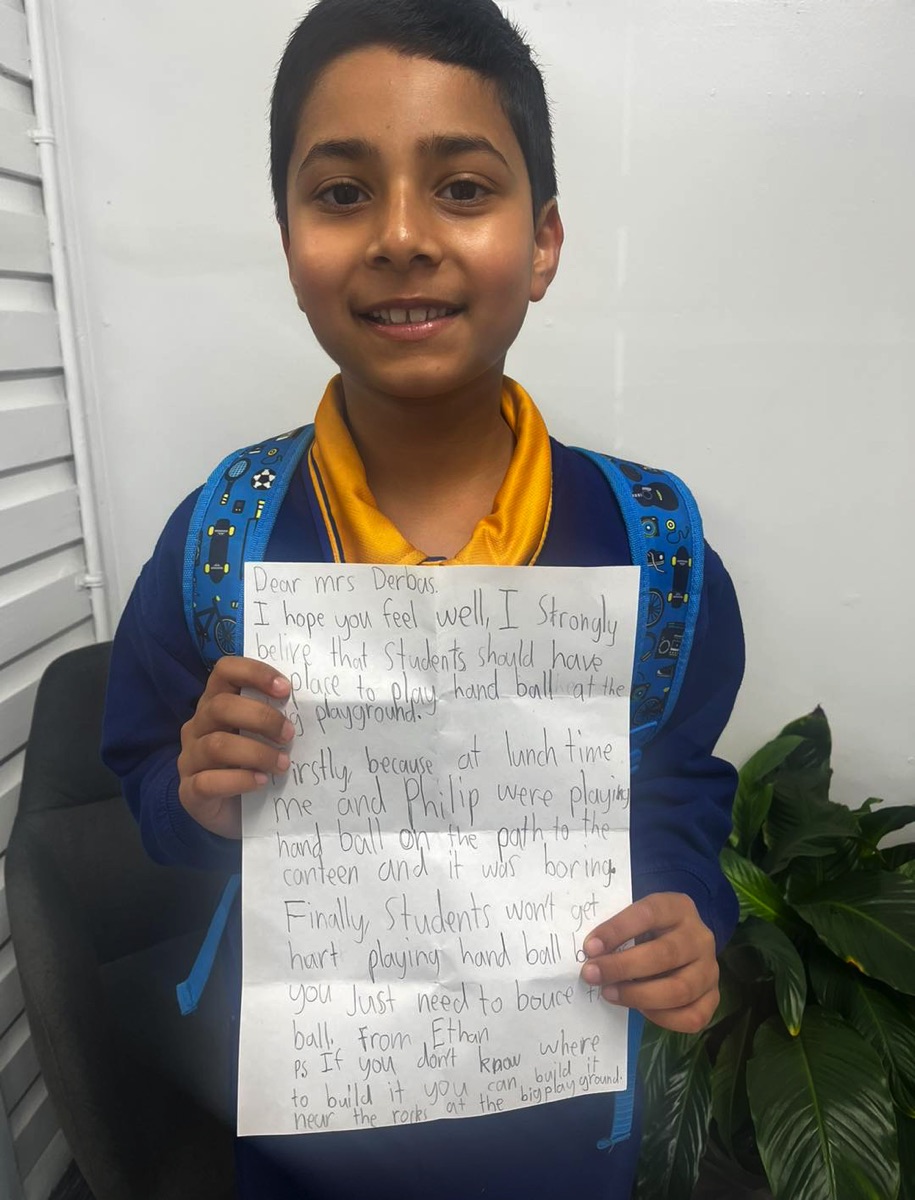 Dear mrs Derbas.
I hope you feel well, I Strongly
belive that Students should have
place to play hand ball at the
playground.
Firstly, because at lunch time
me and Philip were playing
hand ball on the path to the
canteen and it was boring.
Finally, Students won't get
hart playing hand ball
you Just need to bouce
ball. From Ethan
Ps If you don't know where
to build it you can build it
near the rocks at the big play ground.